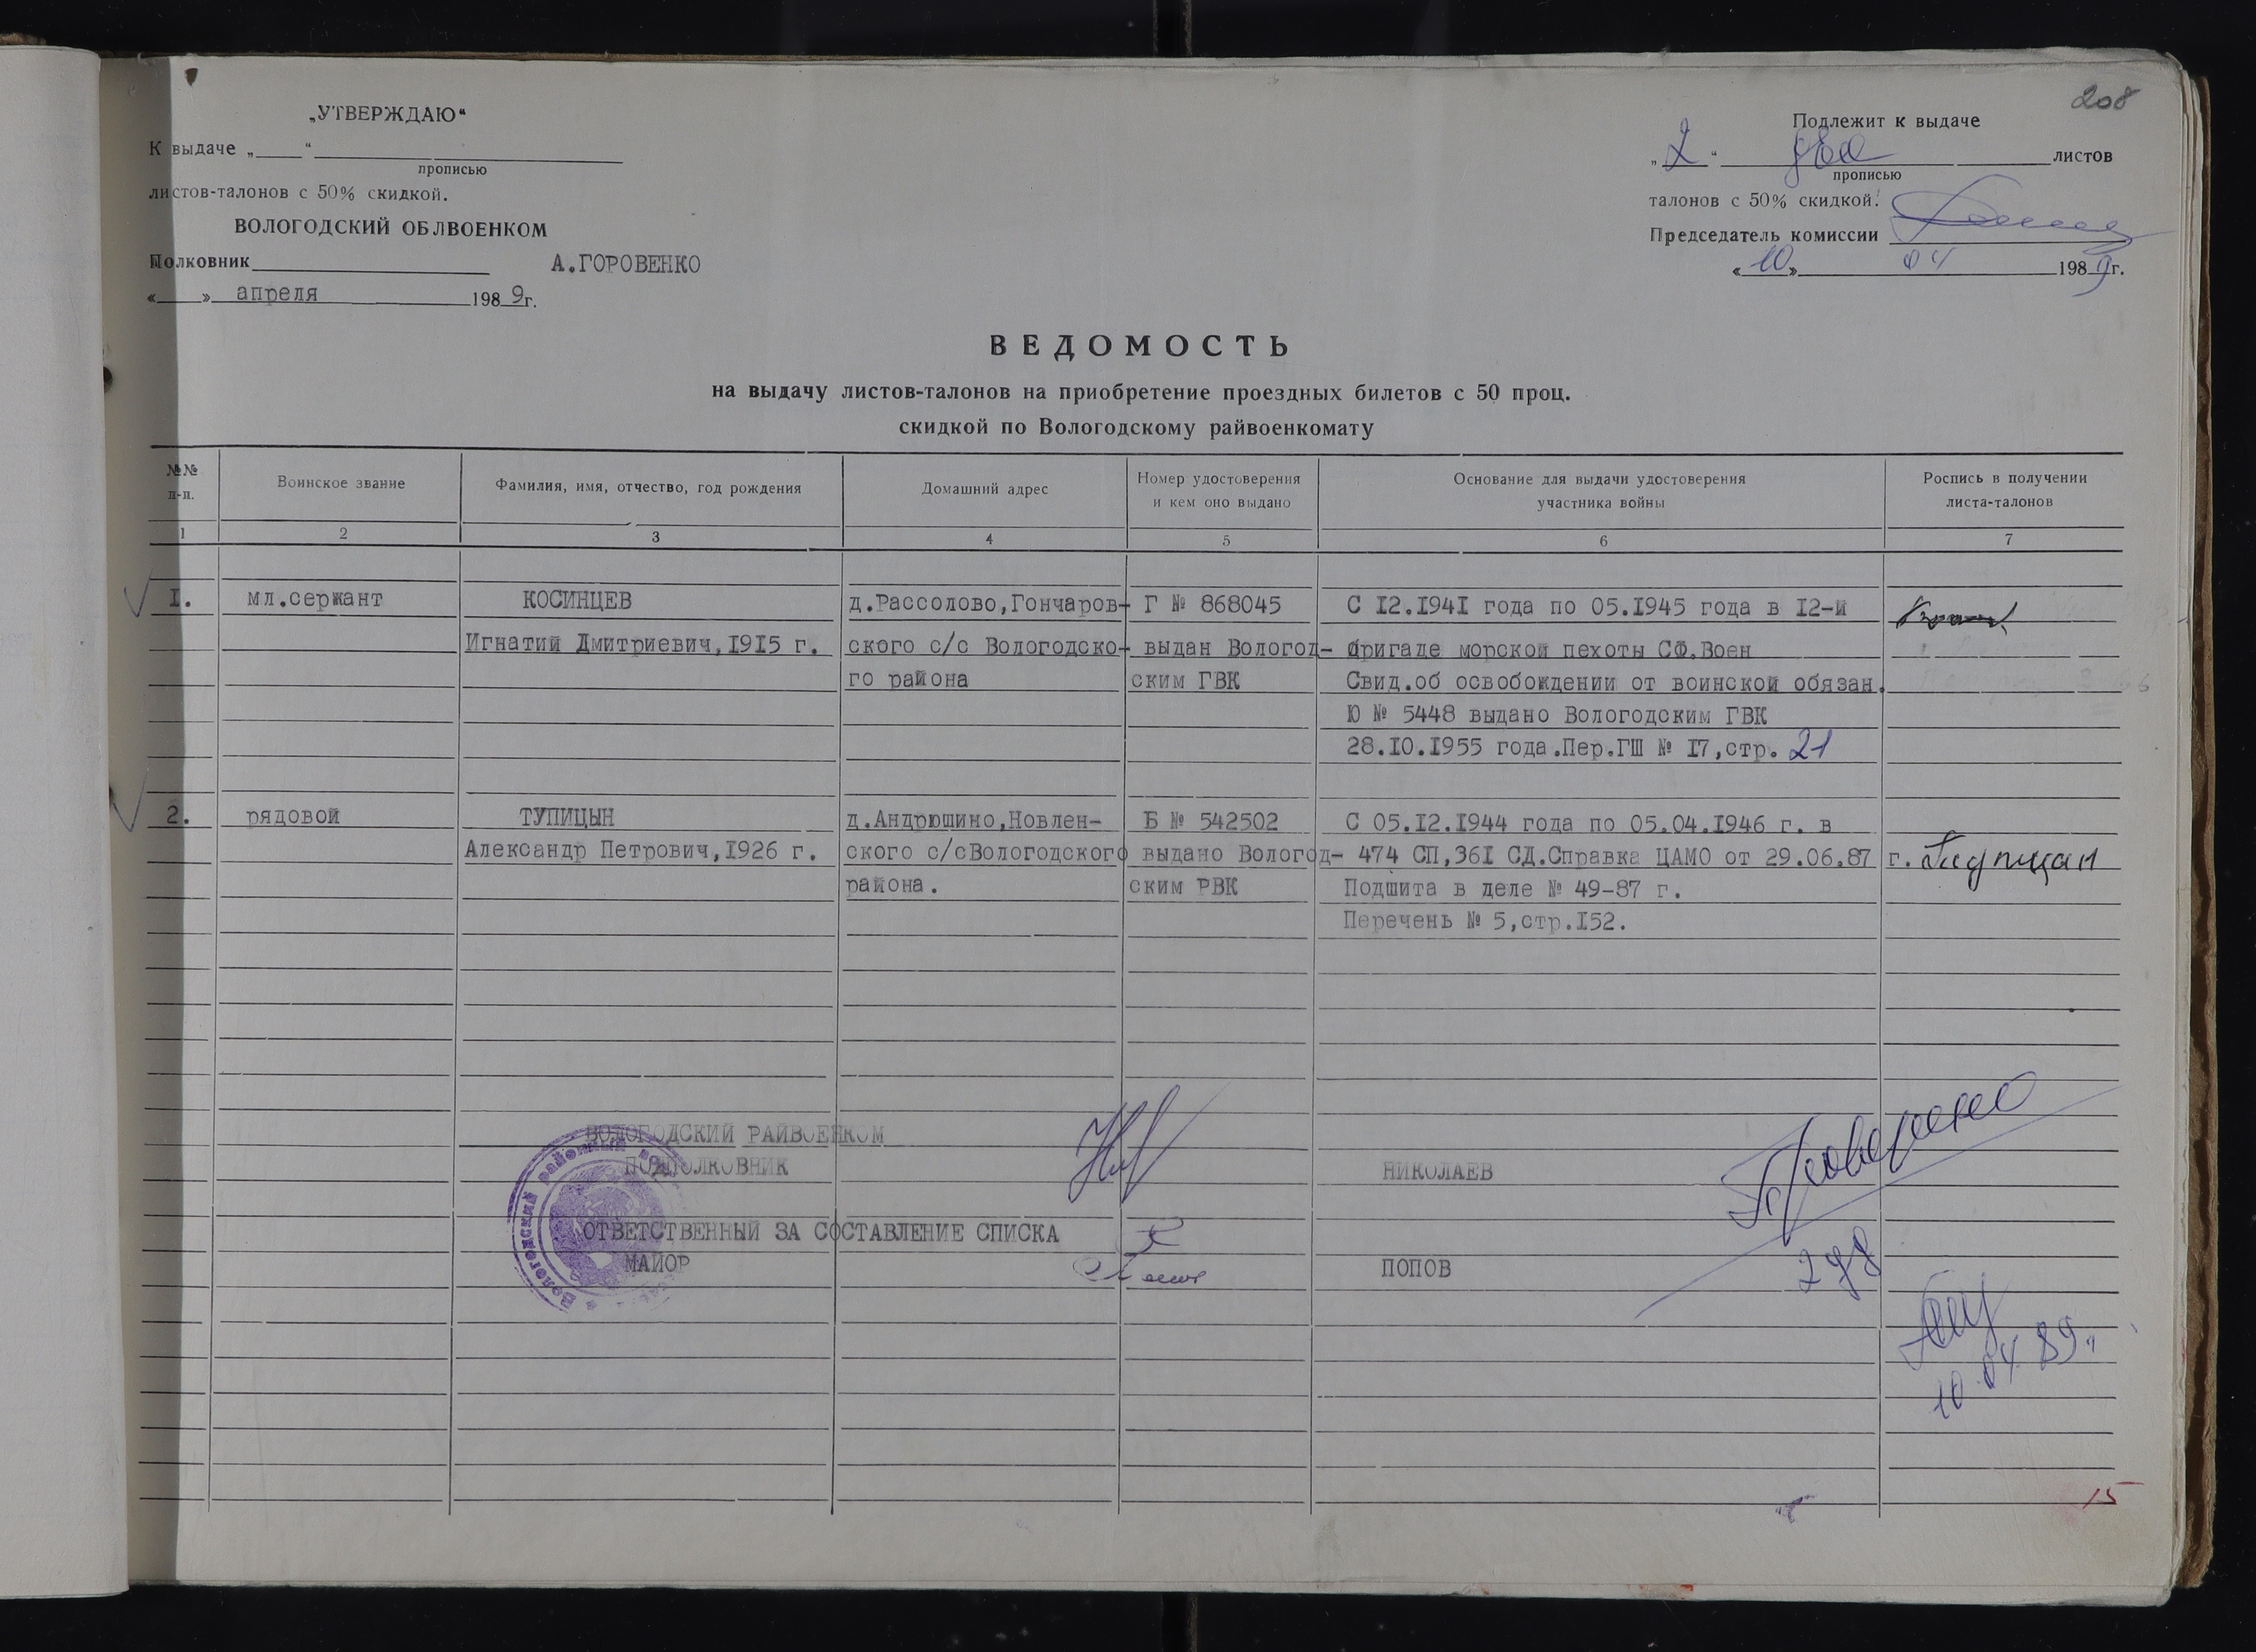 208
„УТВЕРЖДАЮ“
К выдаче „____“
прописью
листов-талонов с 50% скидкой.
ВОЛОГОДСКИЙ ОБЛВОЕНКОМ
Полковник А.ГОРОВЕНКО
«___» апреля 1989г.
Подлежит к выдаче
„2“ два листов
прописью
талонов с 50% скидкой.
Председатель комиссии
«10» 04 1989г.
ВЕДОМОСТЬ
на выдачу листов-талонов на приобретение проездных билетов с 50 проц.
скидкой по Вологодскому райвоенкомату
№№ п-п. Воинское звание Фамилия, имя, отчество, год рождения Домашний адрес Номер удостоверения и кем оно выдано Основание для выдачи удостоверения участника войны Роспись в получении листа-талонов
1 2 3 4 5 6 7
I. мл.сержант КОСИНЦЕВ д.Рассолово,Гончаров- Г № 868045 С I2.I94I года по 05.I945 года в I2-й
Игнатий Дмитриевич,I9I5 г. ского с/с Вологодско- выдан Вологод- бригаде морской пехоты СФ.Воен
го района ским ГВК Свид.об освобождении от воинской обязан.
Ю № 5448 выдано Вологодским ГВК
28.I0.I955 года.Пер.ГШ № I7,стр. 21
2. рядовой ТУПИЦЫН д.Андрюшино,Новлен- Б № 542502 С 05.I2.I944 года по 05.04.I946 г. в
Александр Петрович,I926 г. ского с/сВологодского выдано Вологод- 474 СП,36I СД.Справка ЦАМО от 29.06.87 г.
района. ским РВК Подшита в деле № 49-87 г.
Перечень № 5,стр.I52.
ВОЛОГОДСКИЙ РАЙВОЕНКОМ
ПОДПОЛКОВНИК НИКОЛАЕВ
Проверено
ОТВЕТСТВЕННЫЙ ЗА СОСТАВЛЕНИЕ СПИСКА
МАЙОР ПОПОВ
10.04.89г.
15